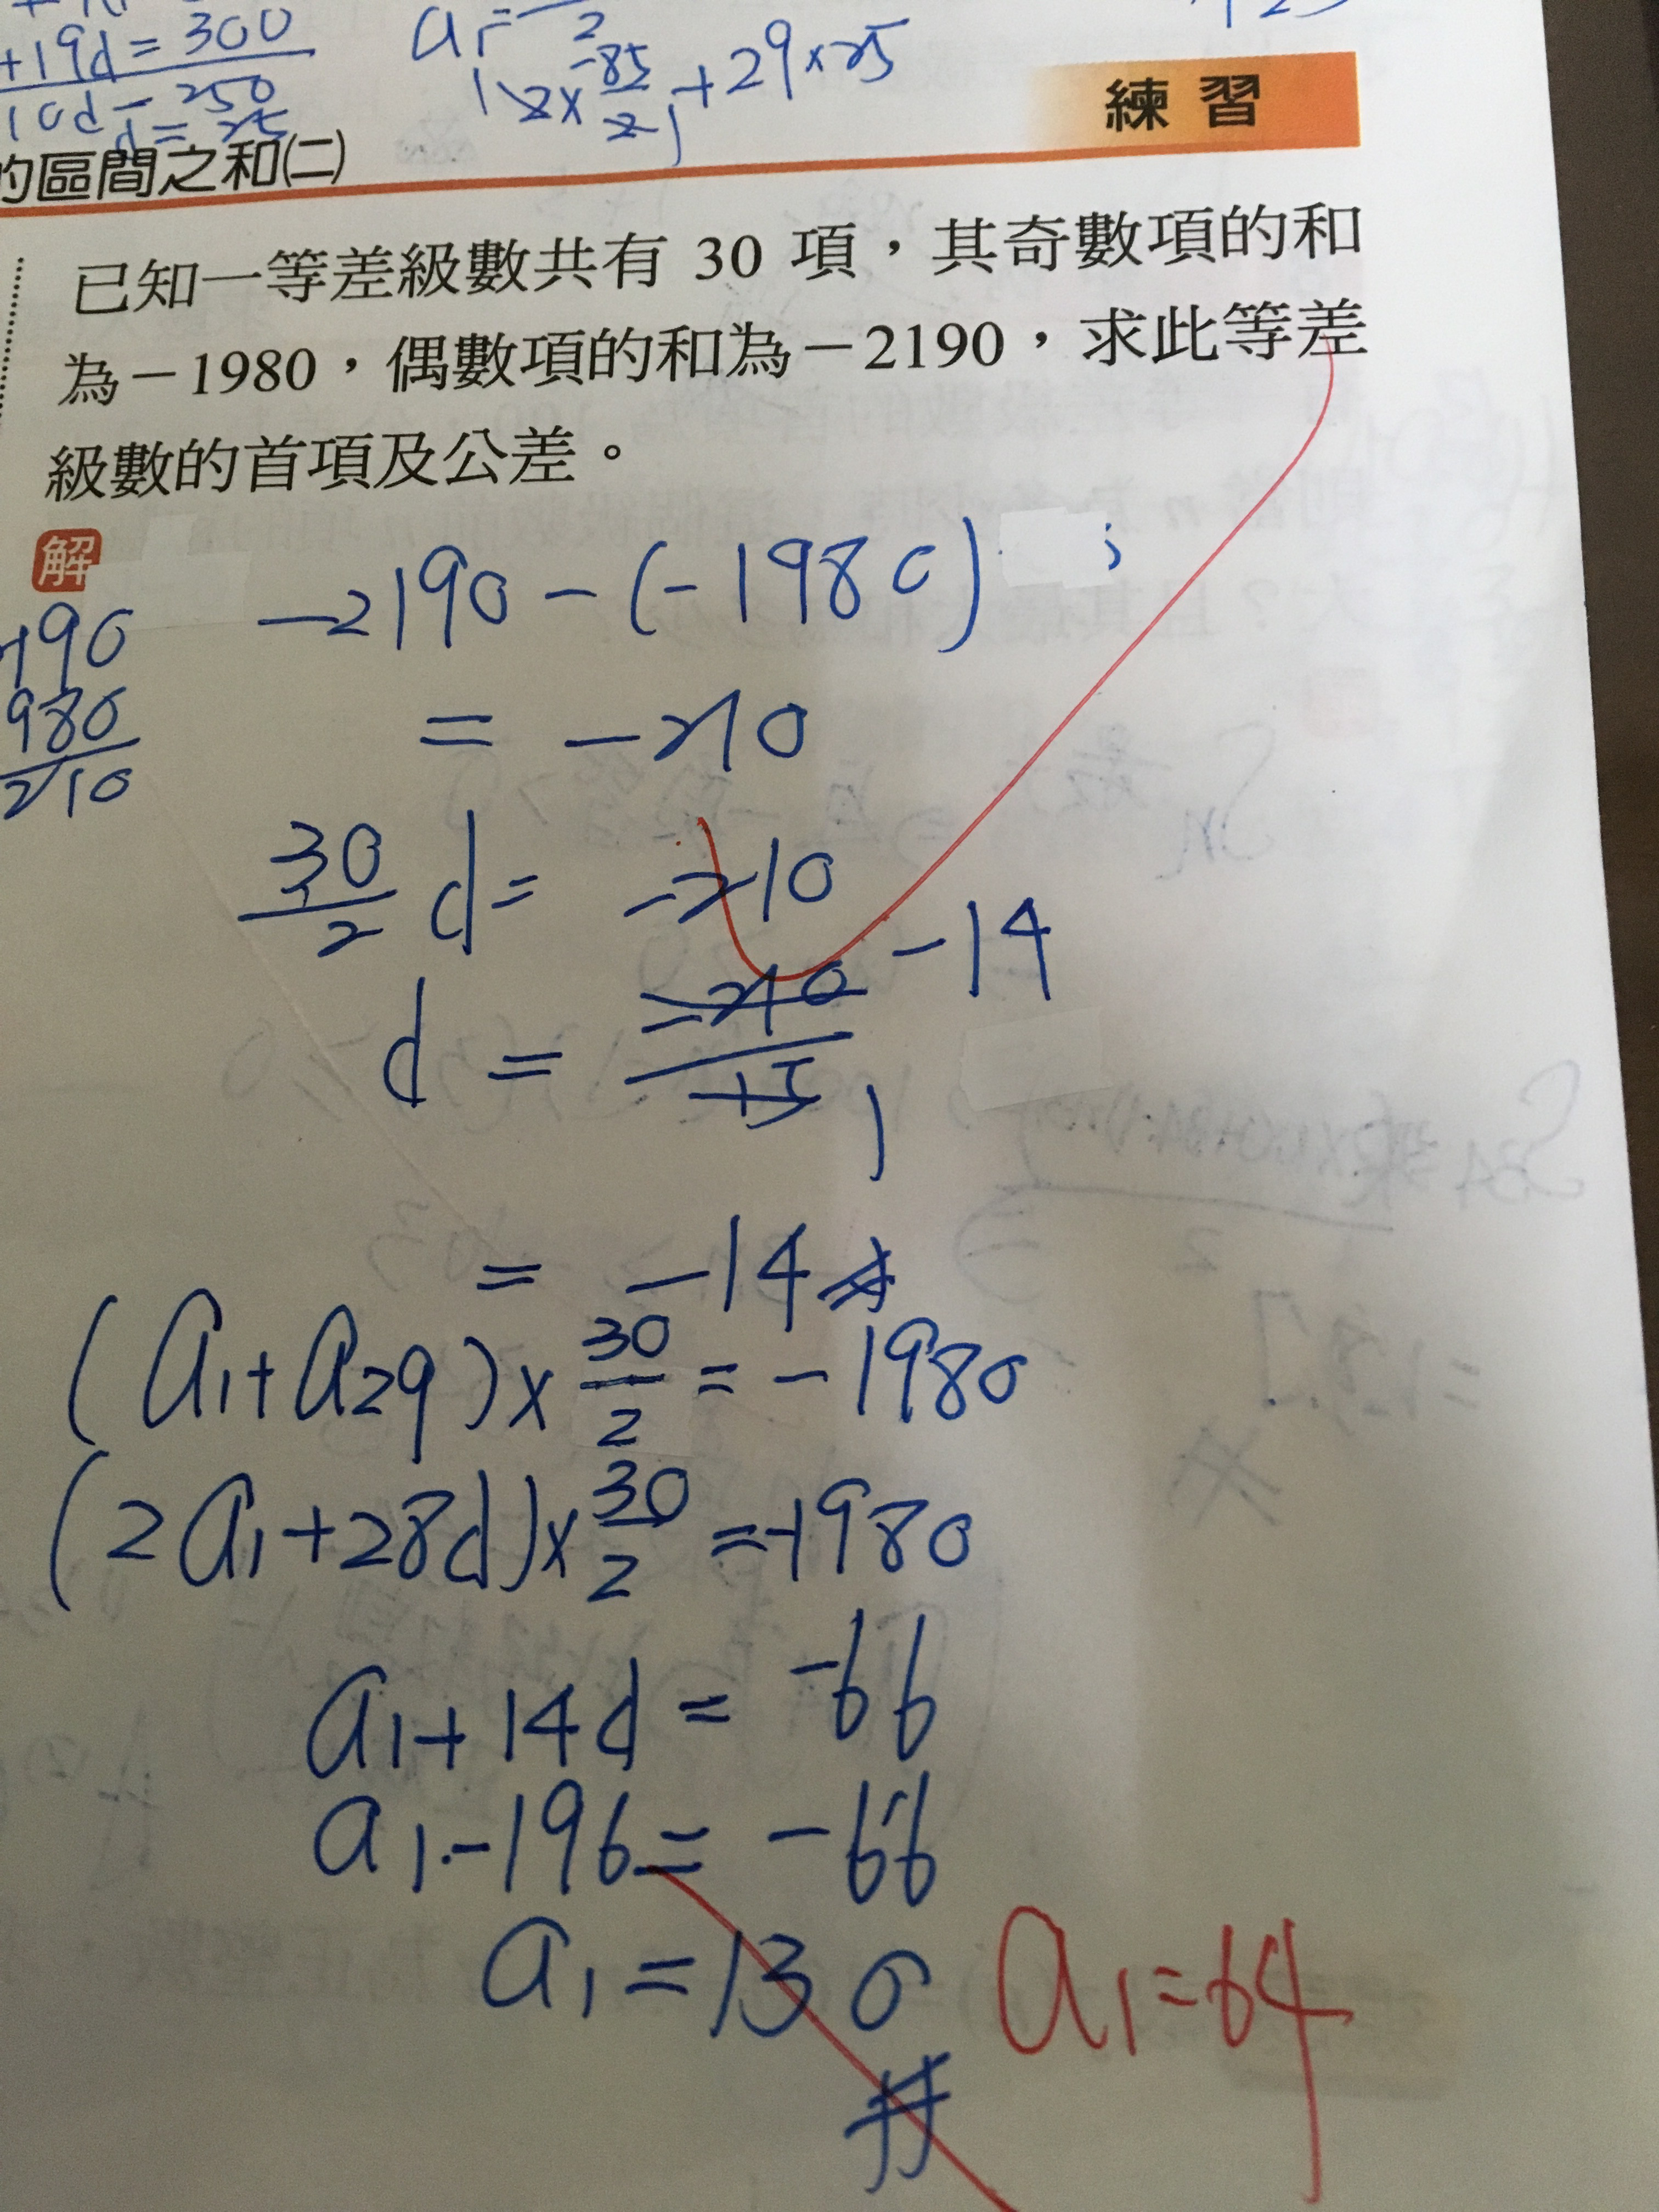 +19d = 300
10d = 250
d = 25
a₁ =
2
2× -85/2 + 29×25
練習
的區間之和㈡
已知一等差級數共有 30 項，其奇數項的和
為－1980，偶數項的和為－2190，求此等差
級數的首項及公差。
解
-2190-(-1980)
190
980
210
= -210
30/2 d = -210
d = -210/15 -14
1
= -14
(a₁+a₂₉)×30/2 = -1980
(2a₁+28d)×30/2 = -1980
a₁+14d = -66
a₁-196 = -66
a₁=130
a₁=64